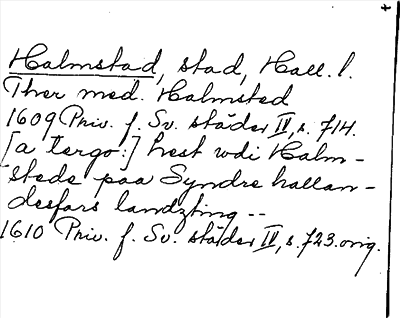 Halmstad, stad, Hall. l.
Ther med. Halmsted
1609 Priv. f. Sv. städer IV, s. 714.
[a tergo:] Lest udi Halm-
stede paa Syndre hallan-
desfars landzting --
1610 Priv. f. Sv. städer IV, s. 723. orig.